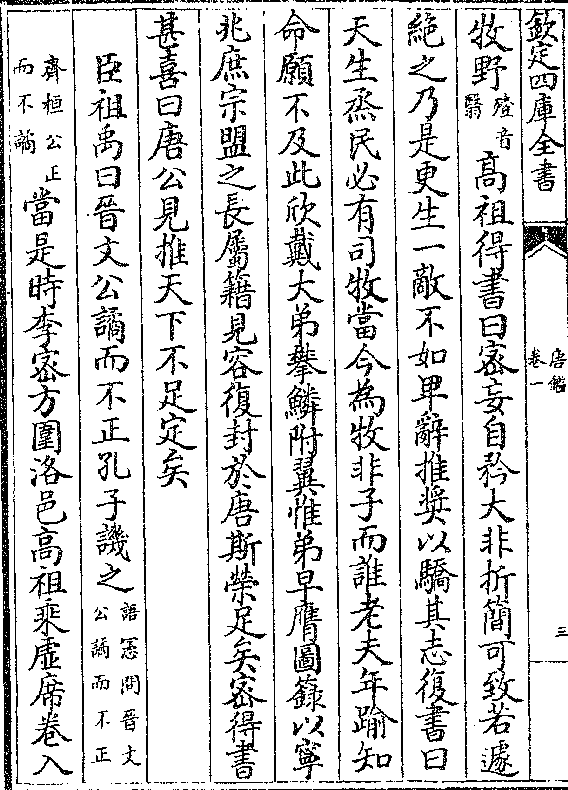 欽定四庫全書
唐鑑
卷一
三
牧野殪音翳高祖得書曰密妄自矜大非折簡可致若遽
絕之乃是更生一敵不如卑辭推奬以驕其志復書曰
天生烝民必有司牧當今為牧非子而誰老夫年踰知
命願不及此欣戴大弟攀鱗附翼惟弟早膺圖籙以寧
兆庶宗盟之長屬籍見容復封於唐斯榮足矣密得書
甚喜曰唐公見推天下不足定矣
臣祖禹曰晉文公譎而不正孔子譏之語憲問晉文公譎而不正
齊桓公正而不譎當是時李密方圍洛邑高祖乘虛席卷入